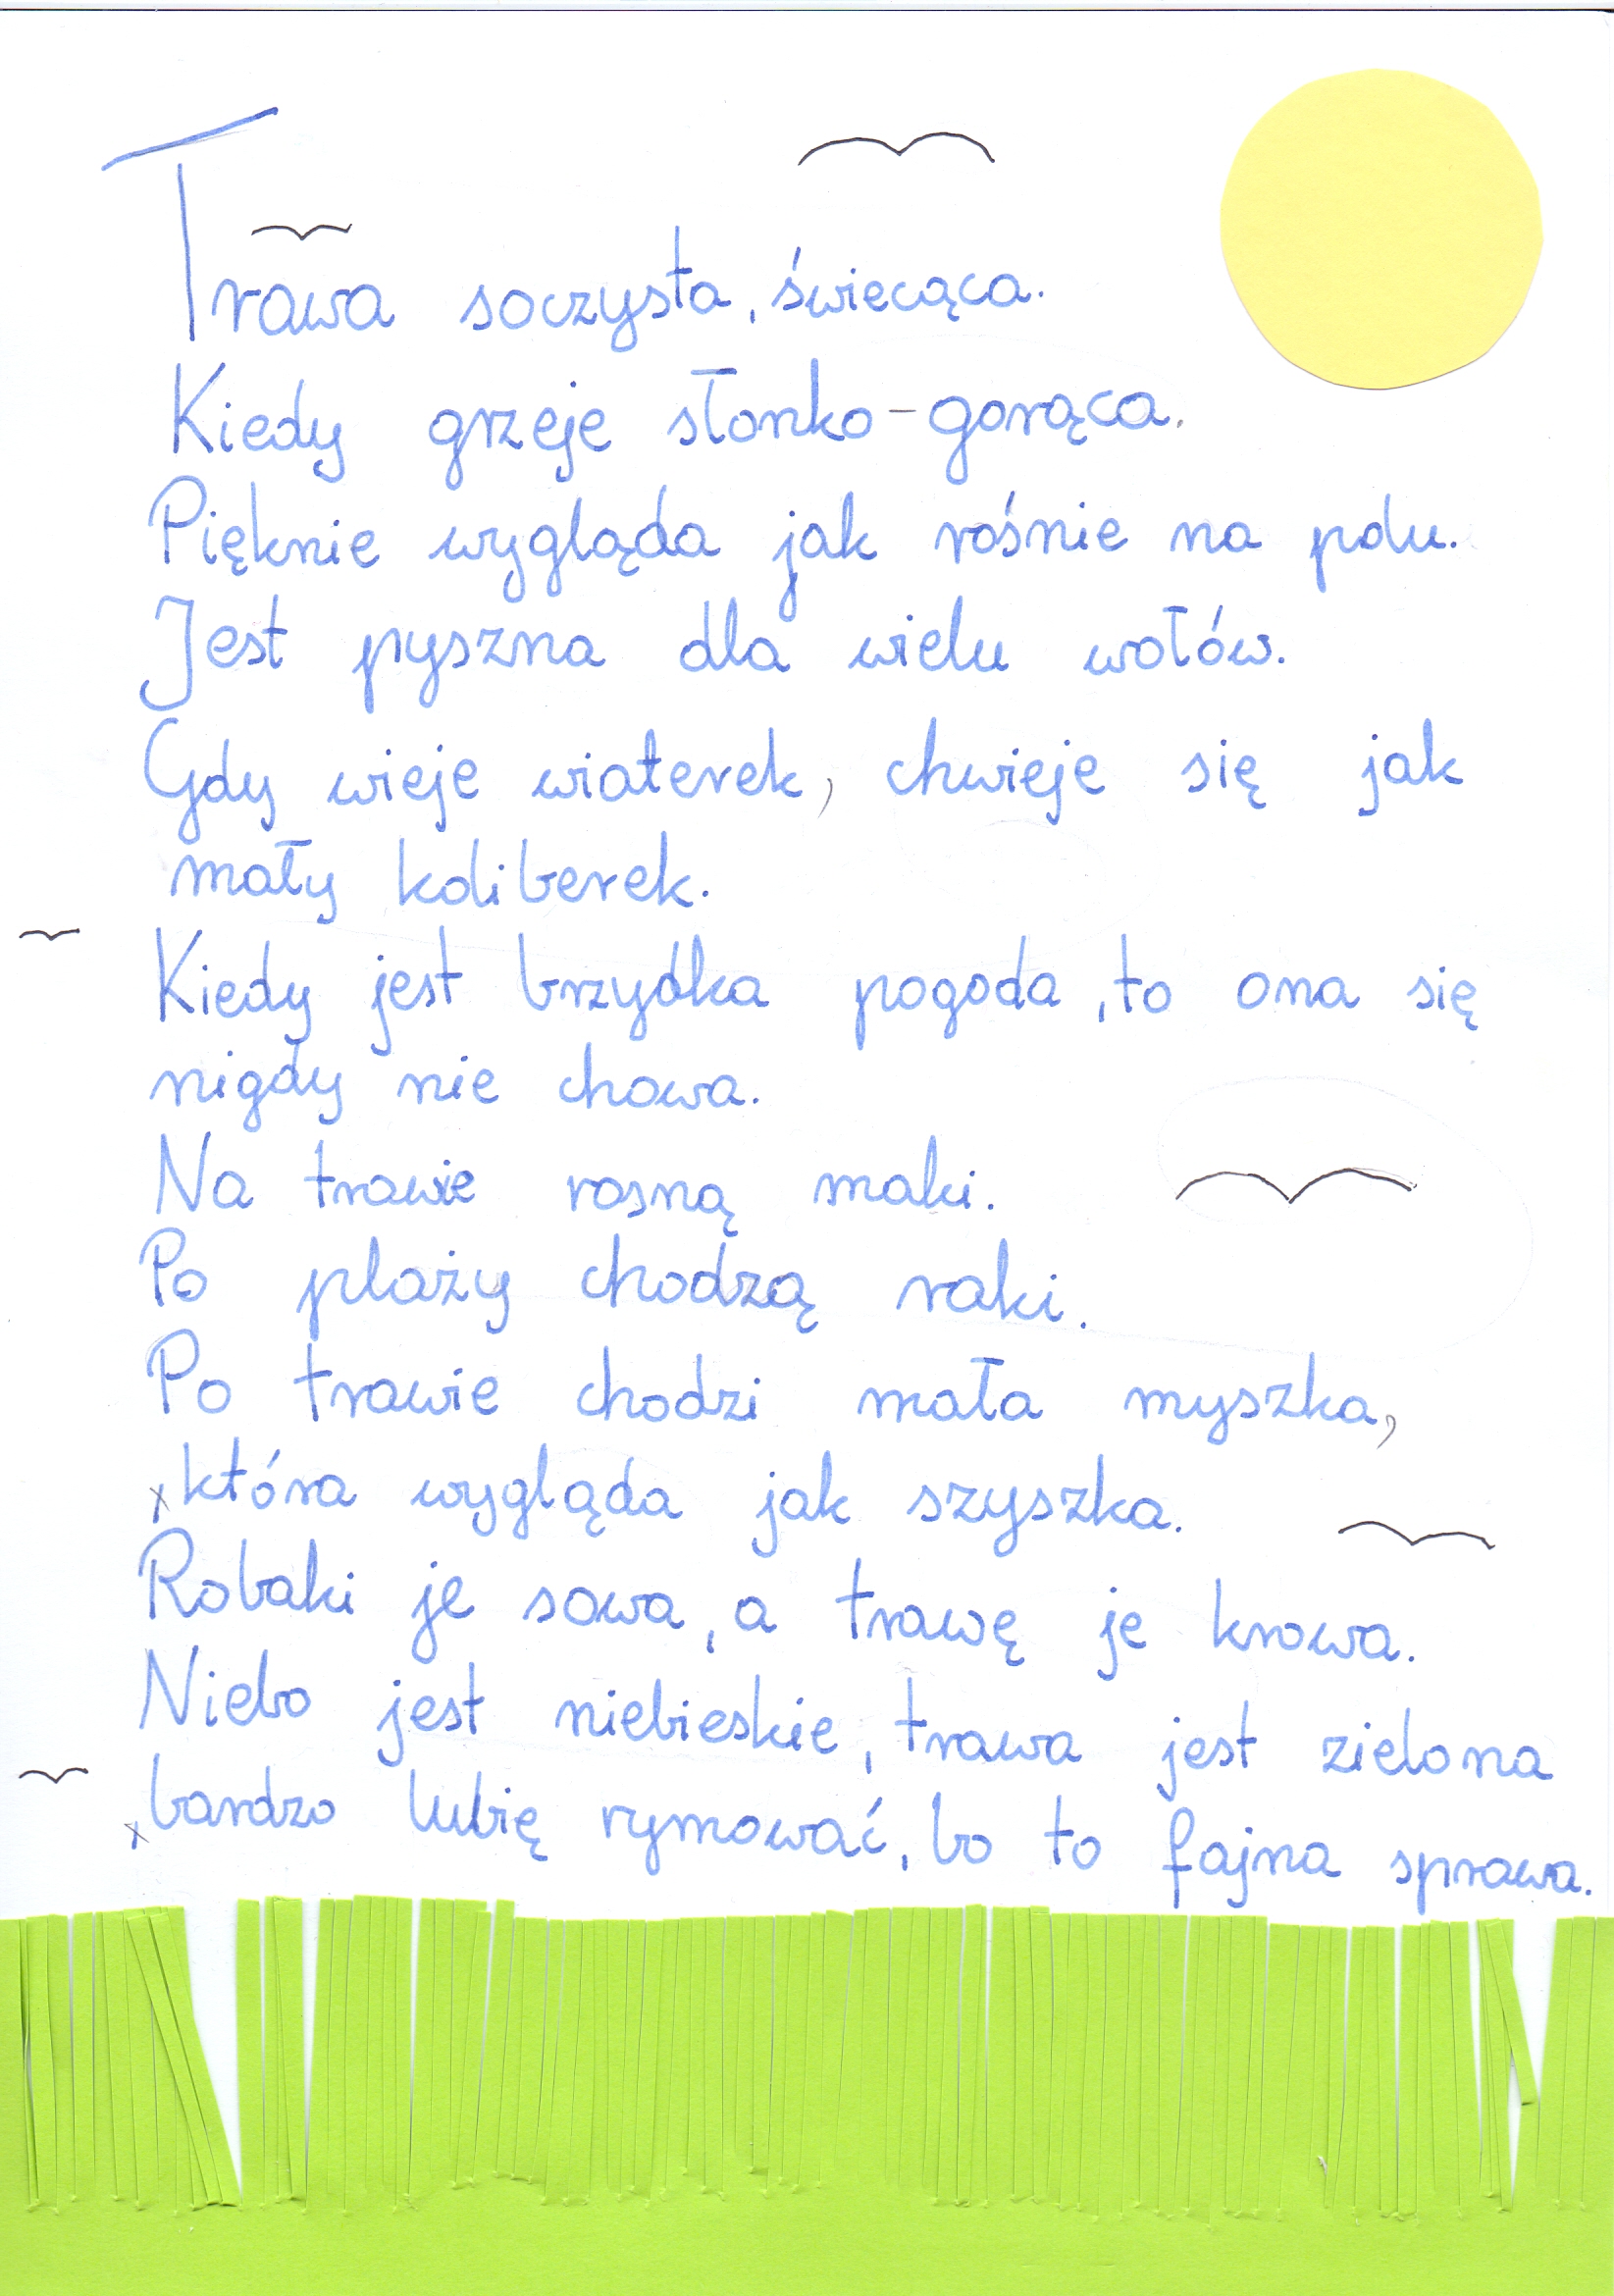 Trawa soczysta, świecąca.
Kiedy grzeje słonko-gorąca.
Pięknie wygląda jak rośnie na polu.
Jest pyszna dla wielu wołów.
Gdy wieje wiaterek, chwieje się jak
mały koliberek.
Kiedy jest brzydka pogoda, to ona się
nigdy nie chowa.
Na trawie rosną maki.
Po plaży chodzą raki.
Po trawie chodzi mała myszka,
,która wygląda jak szyszka.
Robaki je sowa, a trawę je krowa.
Niebo jest niebieskie, trawa jest zielona
,bardzo lubię rymować, bo to fajna sprawa.